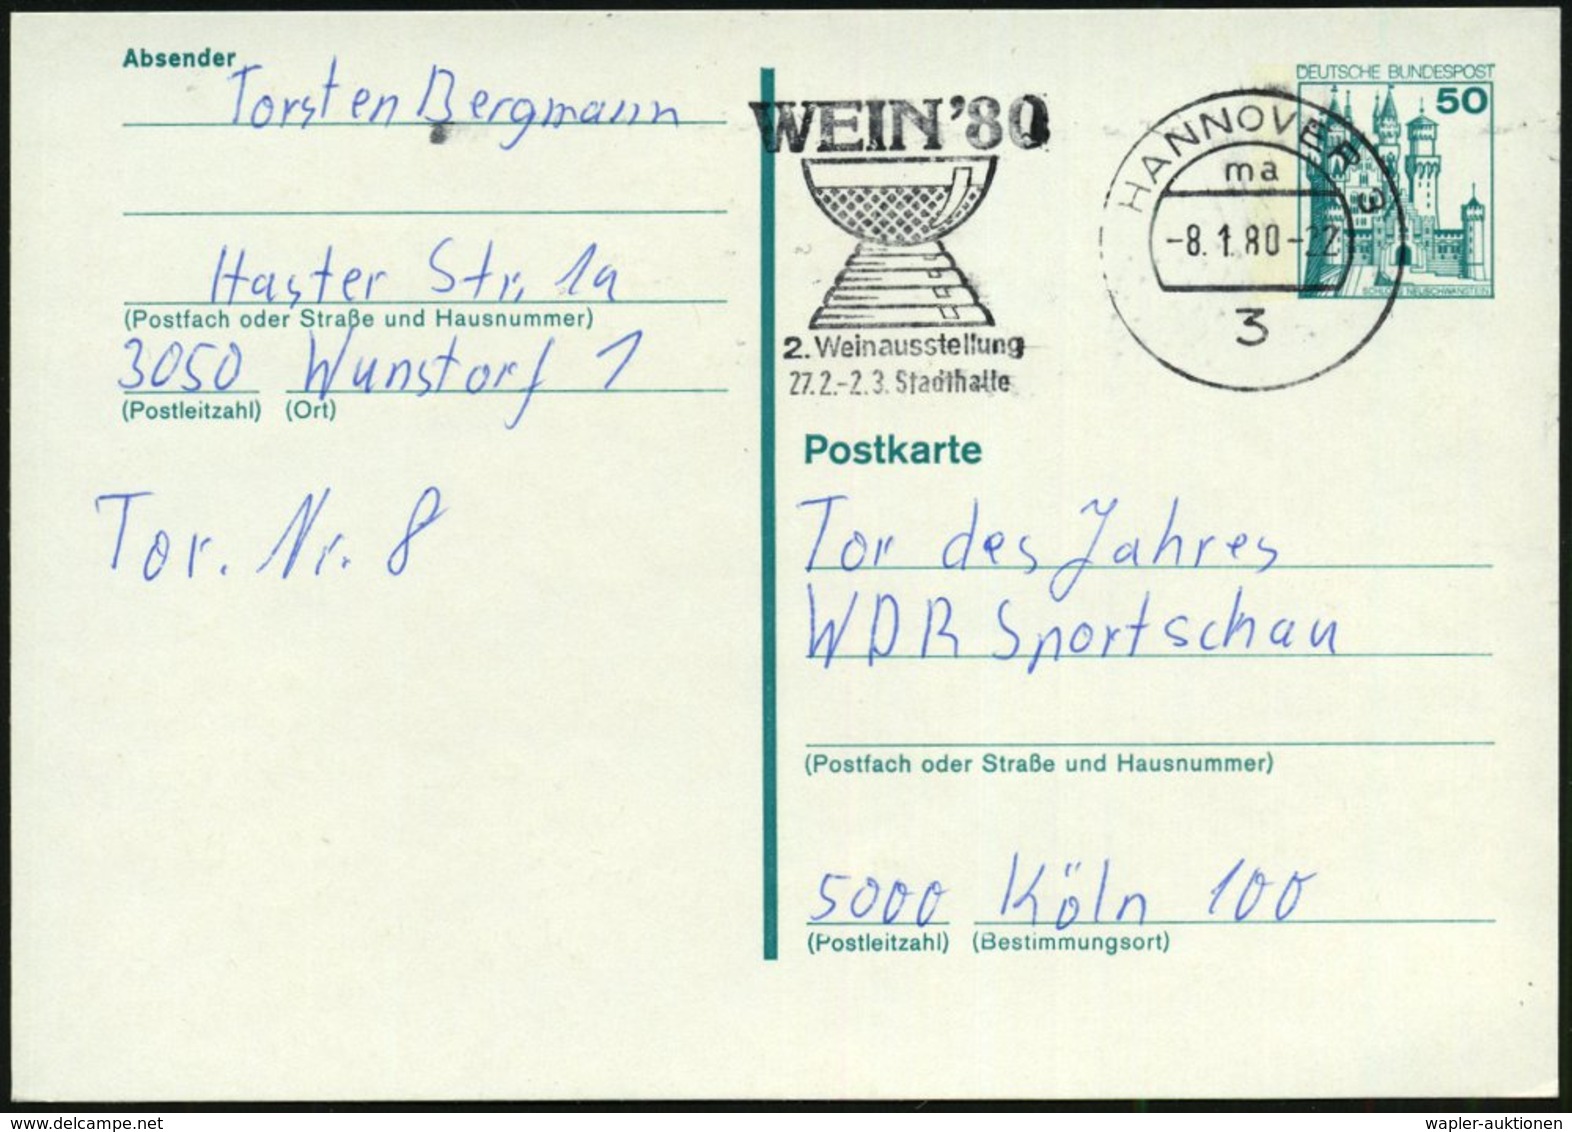 Absender
Torsten Bergmann
Haster Str. 1a
(Postfach oder Straße und Hausnummer)
3050 Wunstorf 1
(Postleitzahl) (Ort)
Tor. Nr. 8
WEIN'80
2. Weinausstellung
27.2.-2.3. Stadthalle
HANNOVER 3
ma
-8.1.80-22
3
DEUTSCHE BUNDESPOST
50
SCHLOSS NEUSCHWANSTEIN
Postkarte
Tor des Jahres
WDR Sportschau
(Postfach oder Straße und Hausnummer)
5000 Köln 100
(Postleitzahl) (Bestimmungsort)
delcampe.net
wapler-auktionen